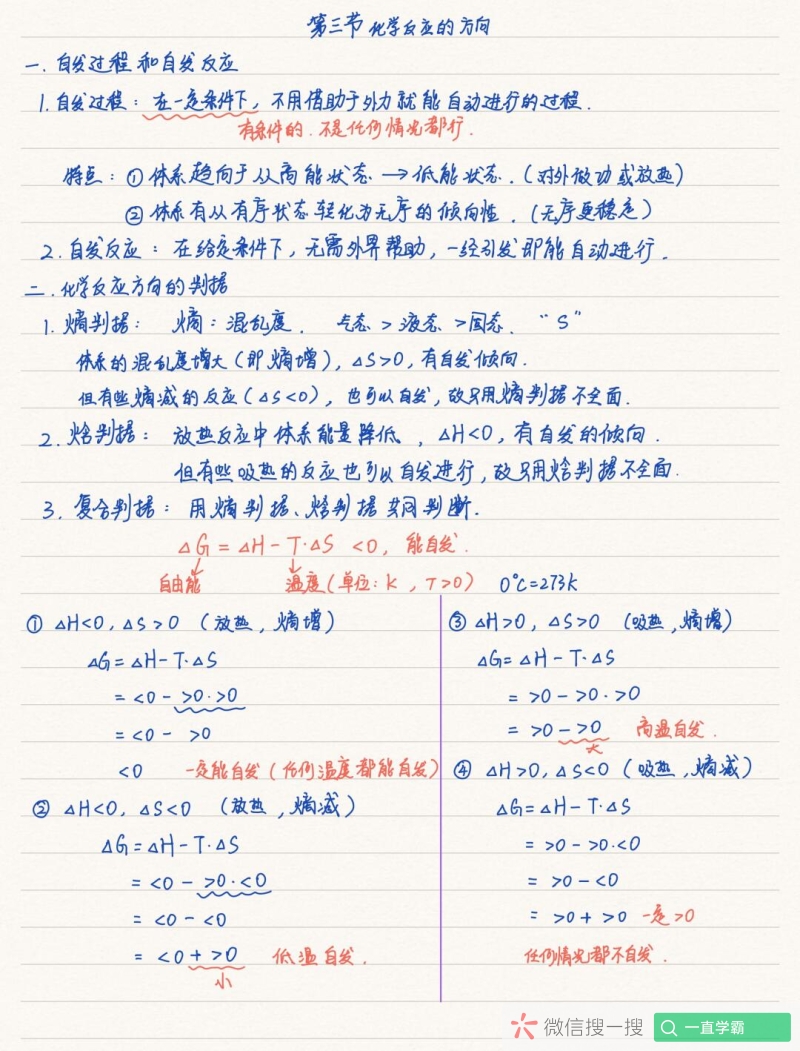 第三节 化学反应的方向
一. 自发过程和自发反应
1. 自发过程：在一定条件下，不用借助于外力就能自动进行的过程.
有条件的. 不是任何情况都行.
特点：① 体系趋向于从高能状态→低能状态.（对外做功或放热）
② 体系有从有序状态转化为无序的倾向性.（无序更稳定）
2. 自发反应：在给定条件下，无需外界帮助，一经引发即能自动进行.
二. 化学反应方向的判据
1. 熵判据： 熵：混乱度. 气态>液态>固态. “S”
体系的混乱度增大（即熵增），△S>0，有自发倾向.
但有些熵减的反应（△S<0），也可以自发，故只用熵判据不全面.
2. 焓判据： 放热反应中体系能量降低，△H<0，有自发的倾向.
但有些吸热的反应也可以自发进行，故只用焓判据不全面.
3. 复合判据：用熵判据、焓判据共同判断.
△G=△H-T·△S <0，能自发.
自由能 温度（单位：K，T>0） 0℃=273K
① △H<0，△S>0（放热，熵增）
△G=△H-T·△S
= <0 - >0·>0
= <0 - >0
<0 一定能自发（任何温度都能自发）
② △H<0，△S<0（放热，熵减）
△G=△H-T·△S
= <0 - >0·<0
= <0 - <0
= <0 + >0 低温自发.
小
③ △H>0，△S>0（吸热，熵增）
△G=△H-T·△S
= >0 - >0·>0
= >0 - >0 高温自发.
大
④ △H>0，△S<0（吸热，熵减）
△G=△H-T·△S
= >0 - >0·<0
= >0 - <0
= >0 + >0 一定>0
任何情况都不自发.
微信搜一搜 一直学霸